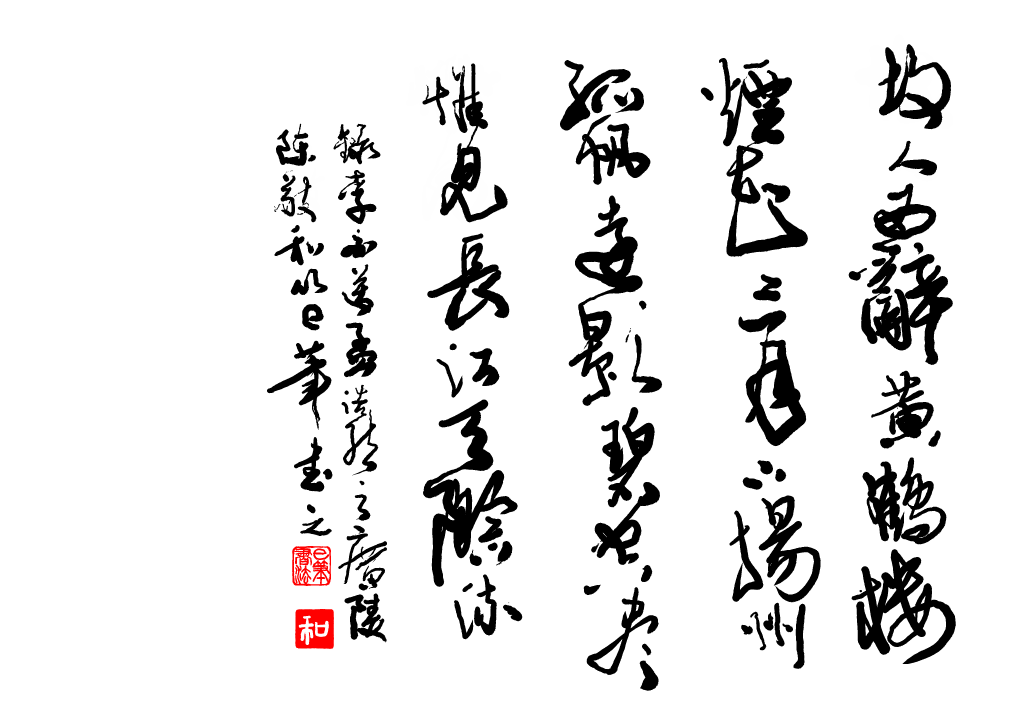 故人西辭黃鶴樓
煙起三月下揚州
孤帆遠影碧空盡
惟見長江天際流
錄李白送孟浩然之廣陵
陳敬和以巳筆書之
巳筆書法
和